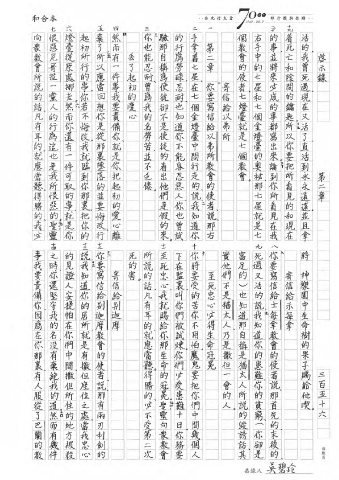 和合本
啓示錄 第二章 三百五十六
活的我曾死過現在又活了直活到永永遠遠並且拿
着死亡和陰間的鑰匙所以你要把所看見的和現在
的事並將來必成的事都寫出來論到你所看見在我
右手中的七星和七個金燈臺的奧祕那七星就是七
個教會的使者七燈臺就是七個教會
第二章 寄信給以弗所
你要寫信給以弗所教會的使者說那右
手拿着七星在七個金燈臺中間行走的說我知道你
的行為勞碌忍耐也知道你不能容忍惡人你也曾試
驗那自稱為使徒卻不是使徒的看出他們是假的來
你也能忍耐曾為我的名勞苦並不乏倦
丟了起初的愛心
然而有一件事我要責備你就是你把起初的愛心離
棄了所以應當回想你是從那裏墜落的並要悔改行
起初所行的事你若不悔改我就臨到你那裏把你的
燈臺從原處挪去然而你還有一件可取的事就是你
恨惡尼哥拉一黨人的行為這也是我所恨惡的聖靈
向眾教會所說的話凡有耳的就應當聽得勝的我必
將 神樂園中生命樹的果子賜給他喫
寄信給示每拿
你要寫信給示每拿教會的使者說那首先的末後的
死過又活的說我知道你的患難你的貧窮(你卻是
富足的)也知道那自稱是猶太人所說的毀謗話其
實他們不是猶太人乃是撒但一會的人
至死忠心的得生命冠冕
你將要受的苦你不用怕魔鬼要把你們中間幾個人
下在監裏叫你們被試煉你們必受患難十日你務要
至死忠心我就賜給你那生命的冠冕聖靈向眾教會
所說的話凡有耳的就應當聽得勝的必不受第二次
死的害
寄信給別迦摩
你要寫信給別迦摩教會的使者說那有兩刃利劍的
說我知道你的居所就是有撒但座位之處當我忠心
的見證人安提帕在你們中間撒但所住的地方被殺
之時你還堅守我的名沒有棄絕我的道然而有幾件
事我要責備你因為在你那裏有人服從了巴蘭的教